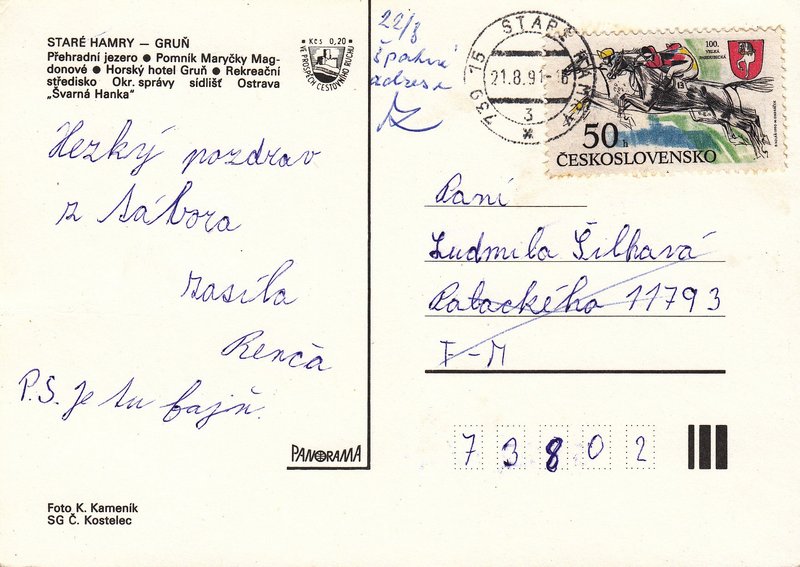 STARÉ HAMRY — GRUŇ
Přehradní jezero ● Pomník Maryčky Mag-
donové ● Horský hotel Gruň ● Rekreační
středisko Okr. správy sídlišť Ostrava
„Švarná Hanka"
Kčs 0,20
VE PROSPĚCH CESTOVNÍHO RUCHU
Hezký pozdrav
z tábora
zasíla
Renča
P.S. Je tu fajň.
PANORAMA
Foto K. Kameník
SG Č. Kostelec
22/8
špatná
adresa
739 15 STARÉ HAMRY
21.8.91
3
100.
VELKÁ
PARDUBICKÁ
13
50 h
ČESKOSLOVENSKO
Paní
Ludmila Šilhavá
Palackého 11793
F-M
73802